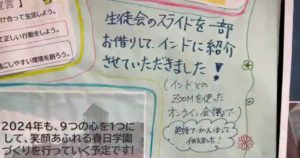 宣言】
け合って生活しよう。
て正しい行動をしよう。
しやすい環境を創ろう。
生徒会のスライドを一部
お借りして、インドに紹介
させていただきました!
(インドとの
ZOOMを使った
オンライン会議で
英語で
2024年も、9つの心を1つに
して、笑顔あふれる春日学園
づくりを行っていく予定です!